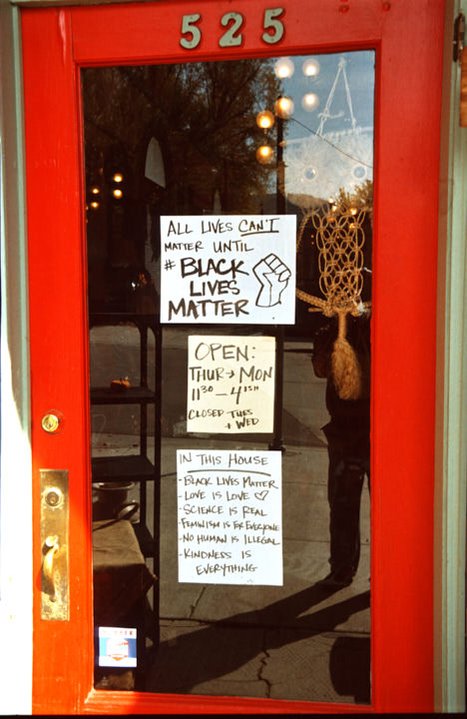 525
ALL LIVES CAN'T
MATTER UNTIL
# BLACK
LIVES
MATTER
OPEN:
THUR → MON
11³⁰ - 4ISH
CLOSED TUES
+ WED
IN THIS HOUSE
- BLACK LIVES MATTER
- LOVE IS LOVE ♡
- SCIENCE IS REAL
- FEMINISM IS FOR EVERYONE
- NO HUMAN IS ILLEGAL
- KINDNESS IS
EVERYTHING